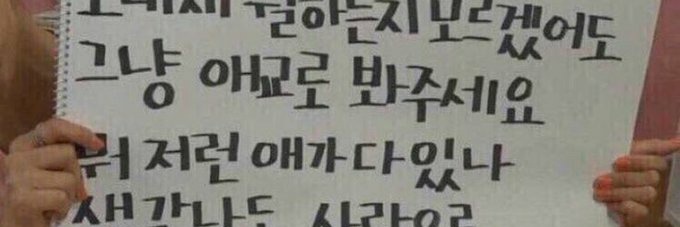 뭘하는지 모르겠어도
그냥 애교로 봐주세요
뭐 저런 애가 다 있나
생각나도 사랑으로